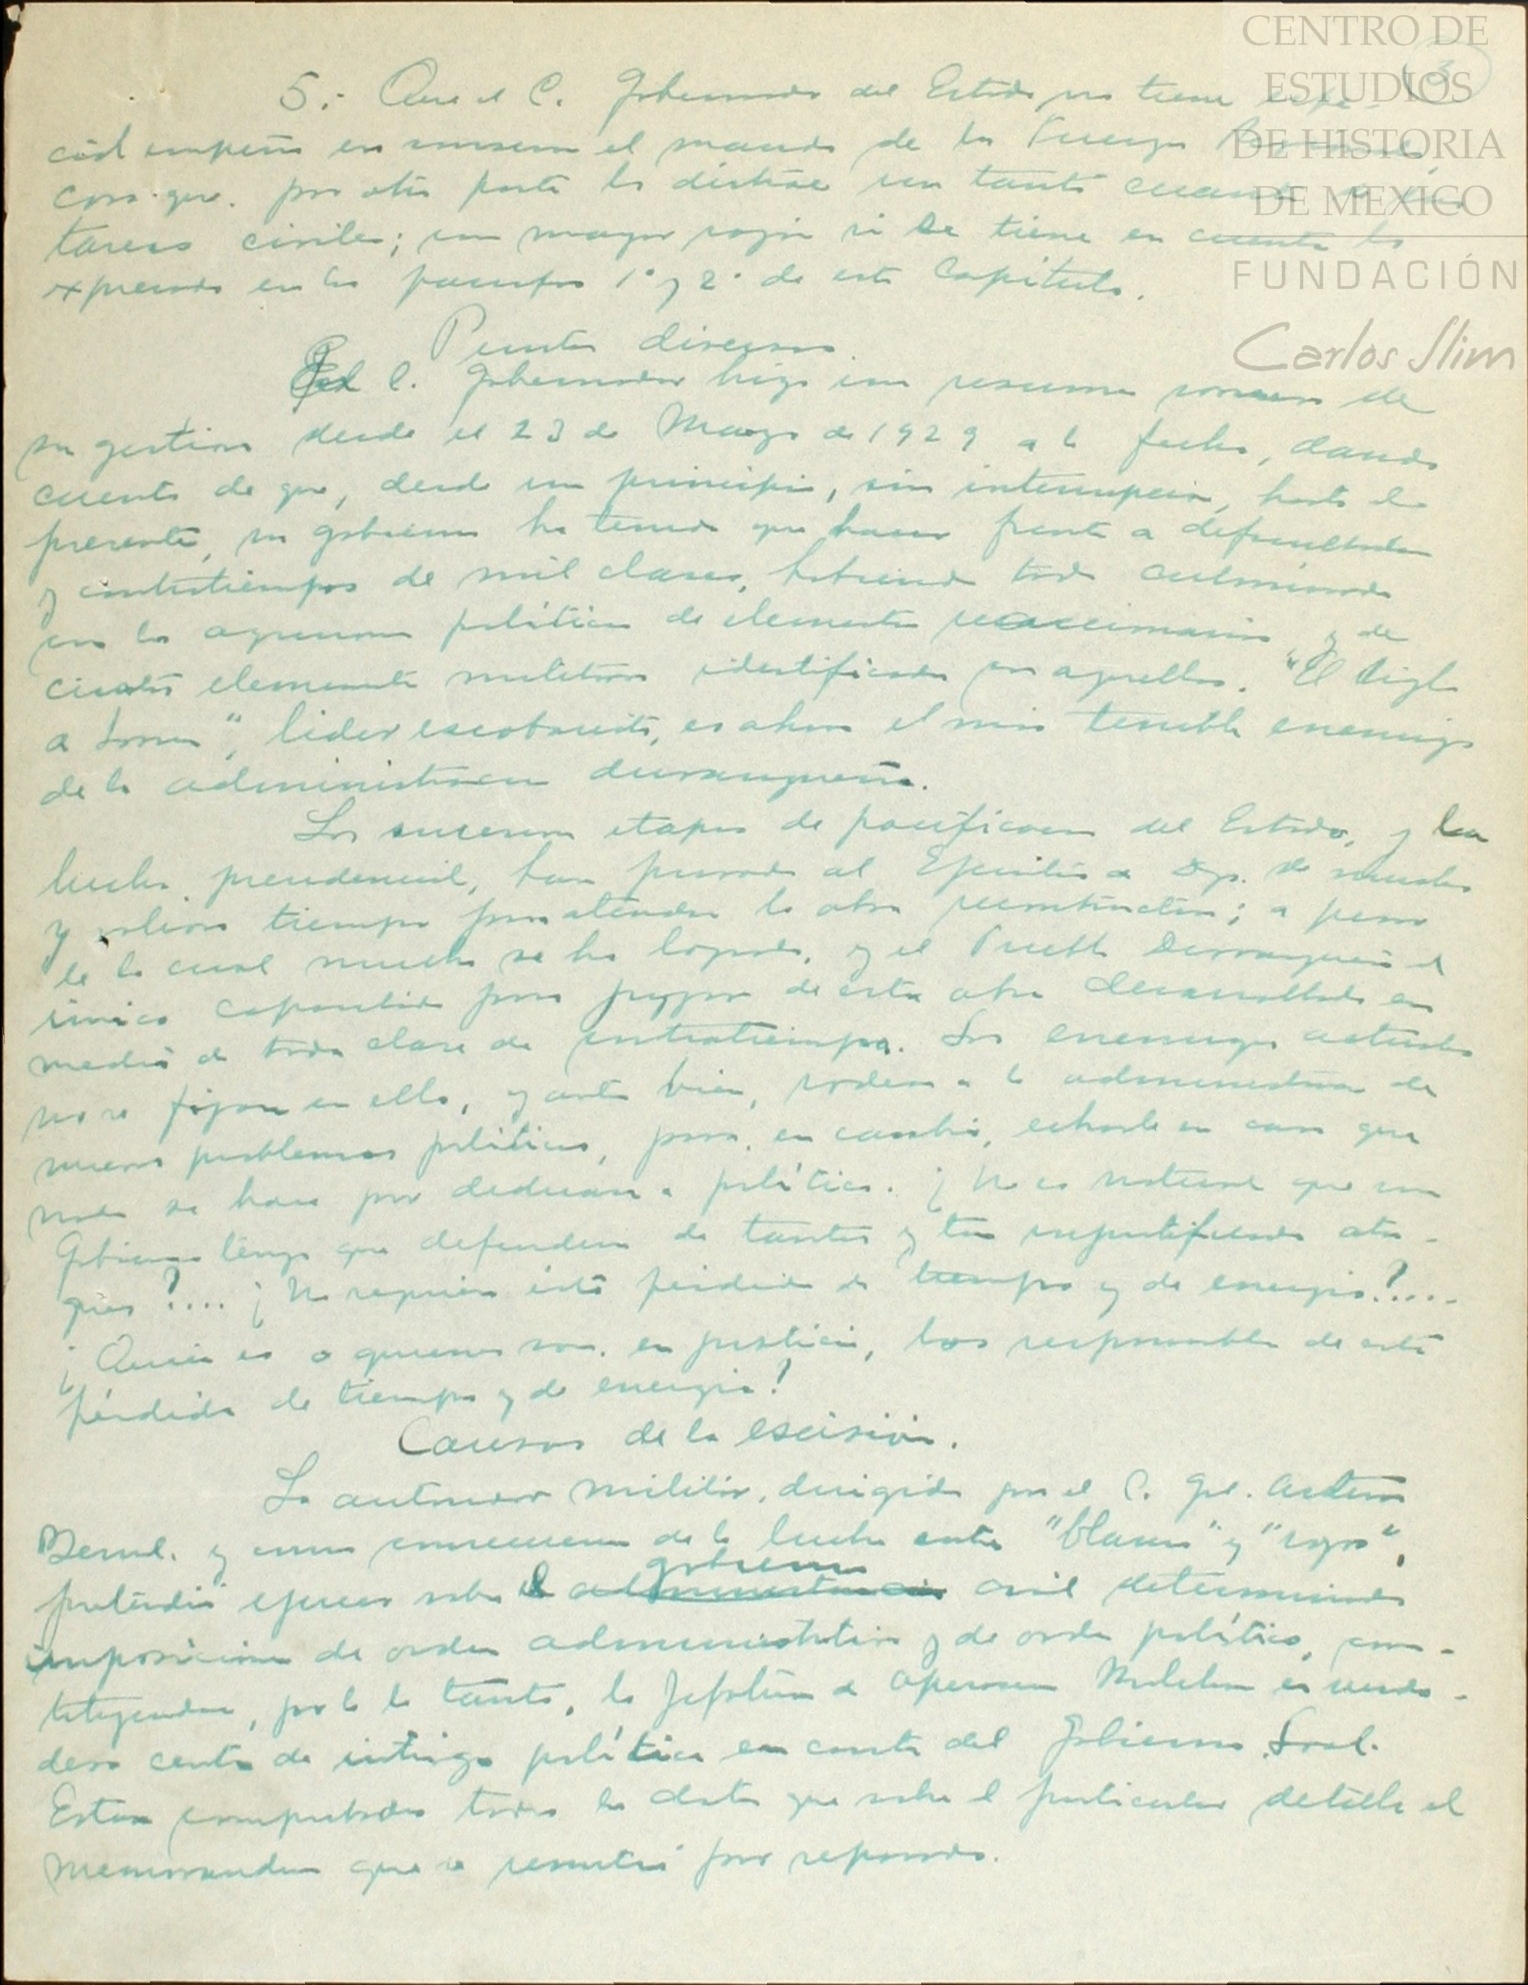 CENTRO DE
ESTUDIOS
DE HISTORIA
DE MEXICO
FUNDACIÓN
Carlos Slim
3
5.- Que el C. Gobernador del Estado no tiene espe-
cial empeño en conservar el mando de la Fuerza
cosa que, por otra parte lo distrae un tanto cuanto a las
tareas civiles; con mayor razón si se tiene en cuenta lo
expresado en los parrafos 1° y 2° de este Capítulo.
Puntos diversos.
El C. Gobernador hizo un resumen somero de
su gestion desde el 23 de Marzo de 1929 a la fecha, dando
cuenta de que, desde un principio, sin interrupcion, hasta el
presente, su gobierno ha tenido que hacer frente a dificultades
y contratiempos de mil clases, habiendo todo culminado
con la agresion política de elementos reaccionarios y de
ciertos elementos militares identificados con aquellos. "El Siglo
de Torreon", lider escobarista, es ahora el mas temible enemigo
de la administracion durangueña.
Las sucesivas etapas de pacificacion del Estado, y la
lucha presidencial, han privado al Ejecutivo de Dgo. de mucho
y valioso tiempo para atender la obra reconstructiva; a pesar
de lo cual mucho se ha logrado, y el Pueblo Durangueño es el
único capacitado para juzgar de esta obra desarrollada en
medio de toda clase de contratiempos. Los enemigos actuales
no se fijan en ello, y antes bien, rodean a la administracion de
nuevos problemas políticos, para, en cambio, echarle en cara que
nada se hace por dedicarse a política. ¡No es natural que un
Gobierno tenga que defenderse de tantos y tan injustificados ata-
ques?.... ¡No requiere ésto pérdida de tiempo y de energia?....
¡Quien es o quienes son, en justicia, los responsables de esta
pérdida de tiempo y de energia!
Causas de la escision.
La autoridad militar, dirigida por el C. Gral. Arturo
Bernal, y como consecuencia de la lucha entre "blancos" y "rojos",
pretendió ejercer sobre el gobierno civil determinadas
imposiciones de orden administrativo y de orden político, cons-
tituyendose, por lo tanto, la Jefatura de Operaciones Militares en verda-
dero centro de intriga política en contra del Gobierno Local.
Estan comprobados todos los datos que sobre el particular detalla el
memorandum que se remitió por separado.